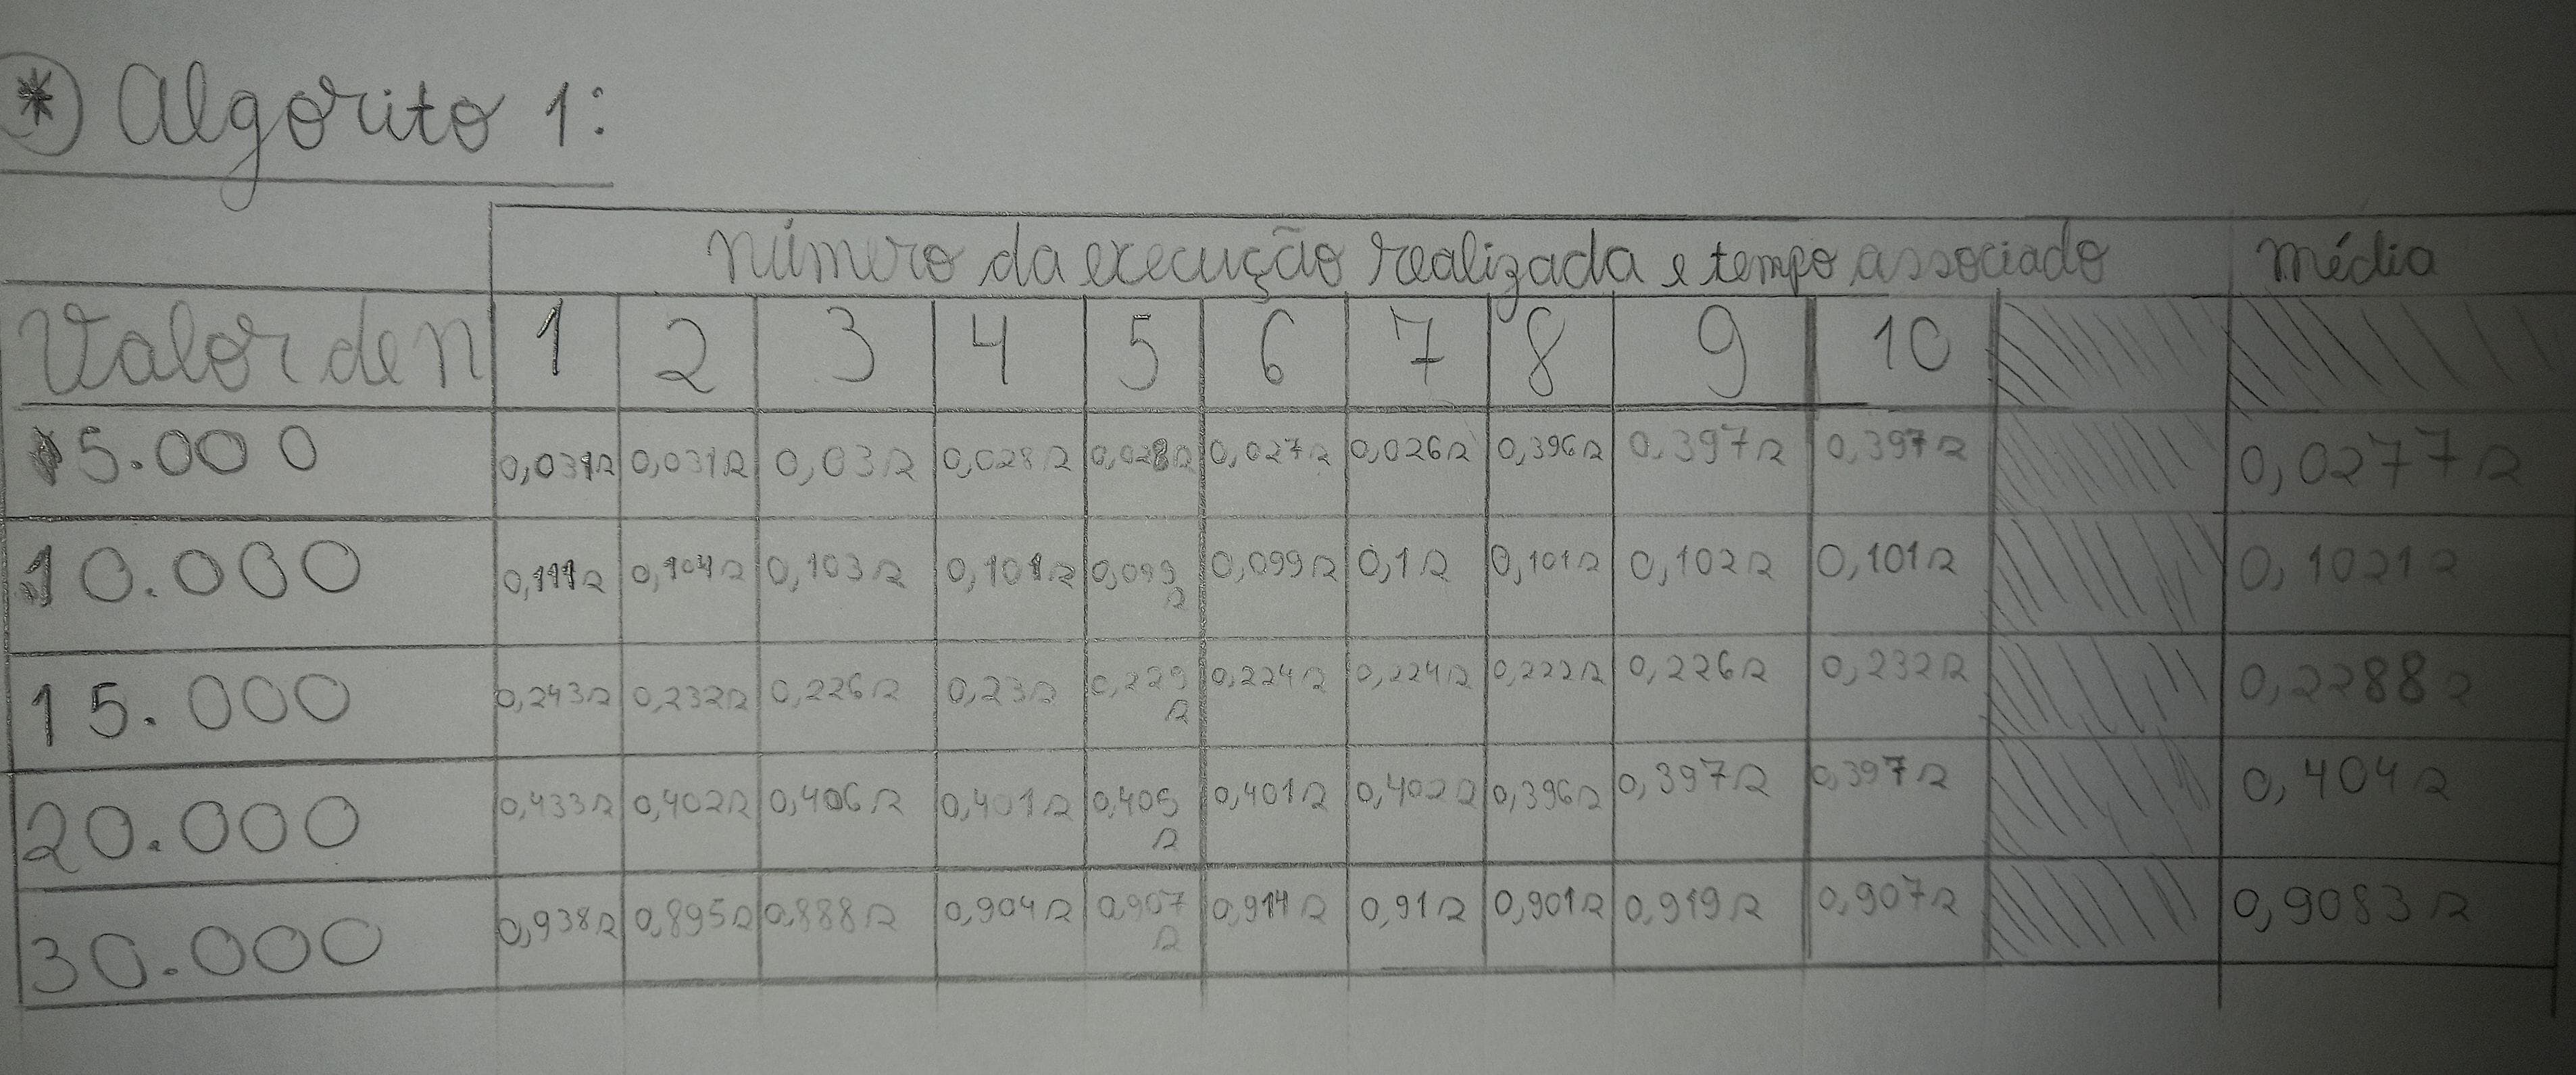 * Algorito 1:
Número da execução realizada e tempo associado Média
Valor de n 1 2 3 4 5 6 7 8 9 10
5.000 0,031s 0,031s 0,03s 0,028s 0,028s 0,027s 0,026s 0,396s 0,397s 0,397s 0,0277s
10.000 0,111s 0,104s 0,103s 0,101s 0,099s 0,099s 0,1s 0,101s 0,102s 0,101s 0,1021s
15.000 0,243s 0,232s 0,226s 0,23s 0,229s 0,224s 0,224s 0,222s 0,226s 0,232s 0,2288s
20.000 0,433s 0,402s 0,406s 0,401s 0,405s 0,401s 0,402s 0,396s 0,397s 0,397s 0,404s
30.000 0,938s 0,895s 0,888s 0,904s 0,907s 0,914s 0,91s 0,901s 0,919s 0,907s 0,9083s